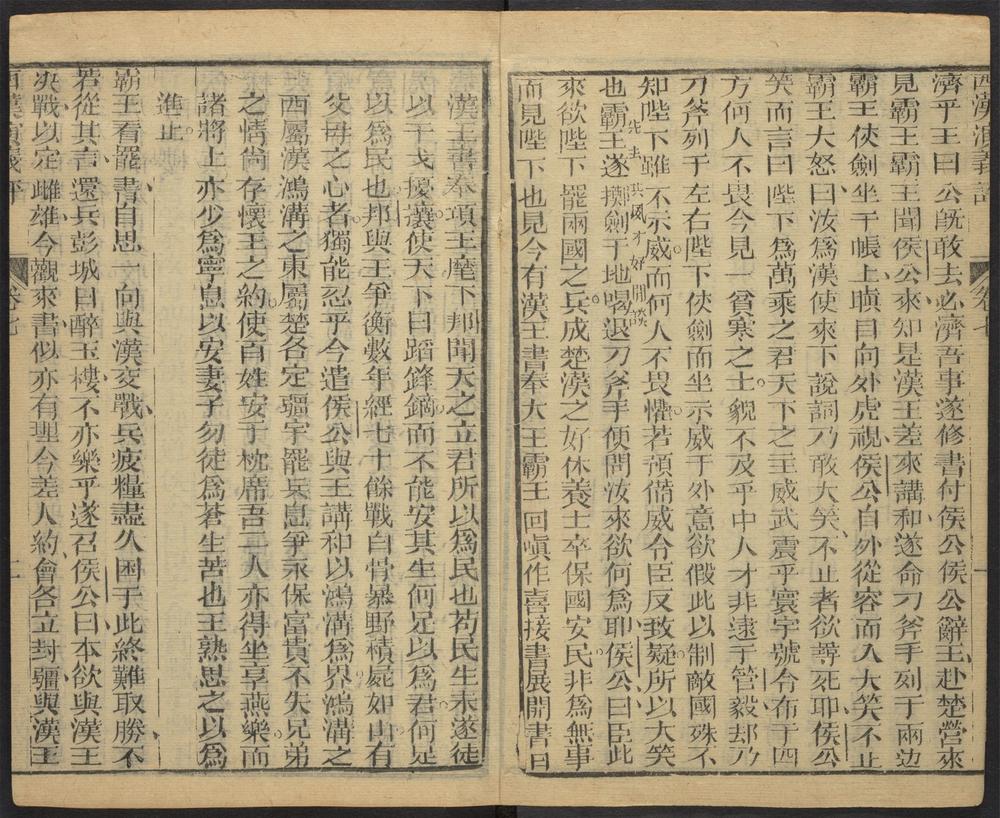 西漢演義評
卷七
一
濟乎王曰公旣敢去必濟吾事遂修書付侯公侯公辭王赴楚營來
見霸王霸王聞侯公來知是漢王差來講和遂命刀斧手列于兩边
霸王俠劍坐于帳上瞋目向外虎視侯公自外從容而入大笑不止
霸王大怒曰汝爲漢使來下說詞乃敢大笑不止者欲尋死耶侯公
笑而言曰陛下爲萬乘之君天下之主威武震乎寰宇號令布于四
方何人不畏今見一貧寒之士貌不及乎中人才非逺于管毅却乃
刀斧列于左右陛下俠劍而坐示威于外意欲假此以制敵國殊不
知陛下雖不示威而何人不畏懼若預俻威令臣反致疑所以大笑
先去其威才好開談
也霸王遂擲劍于地喝退刀斧手便問汝來欲何爲耶侯公曰臣此
來欲陛下罷兩國之兵成楚漢之好休養士卒保國安民非爲無事
而見陛下也見今有漢王書奉大王霸王回嗔作喜接書展開書曰
漢王書奉項王麾下邦聞天之立君所以爲民也苟民生未遂徒
以干戈擾攘使天下曰蹈鋒鏑而不能安其生何足以爲君何足
以爲民也邦與王爭衡數年經七十餘戰白骨暴野積屍如山有
父母之心者獨能忍乎今遣侯公與王講和以鴻溝爲界鴻溝之
西屬漢鴻溝之東屬楚各定疆宇罷兵息爭永保富貴不失兄弟
之情尙存懷王之約使百姓安于枕席吾二人亦得坐享燕樂而
諸將士亦少爲寧息以安妻子勿徒爲蒼生苦也王熟思之以爲
進止
霸王看罷書自思一向與漢交戰兵疲糧盡久困于此終難取勝不
若從其言還兵彭城日醉玉樓不亦樂乎遂召侯公曰本欲與漢王
决戰以定雌雄今觀來書似亦有理今差人約會各立封疆與漢王
西漢演義評
卷七
二